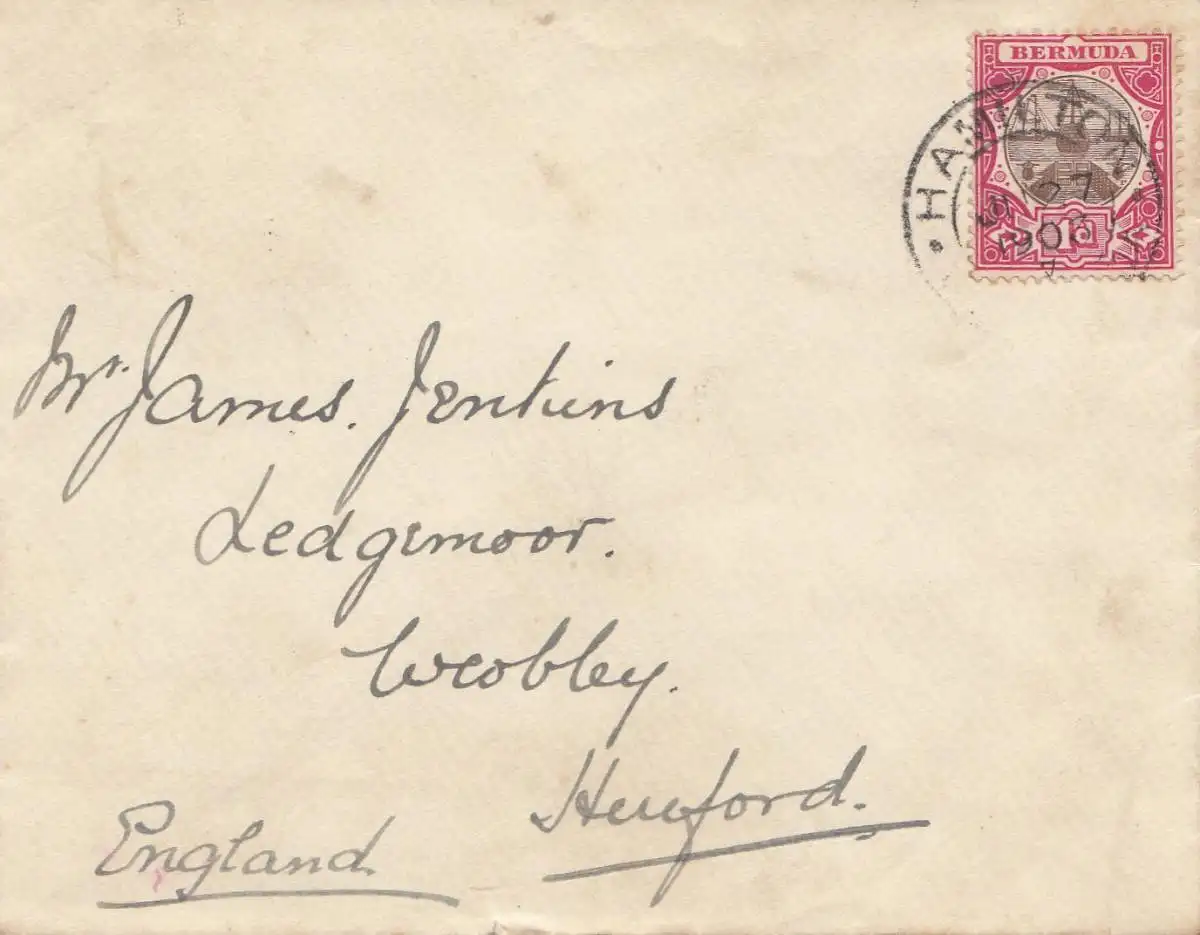 BERMUDA
HAMILTON
27
1906
7
1d
Mr. James. Jenkins
Ledgemoor.
Weobley.
Hereford.
England.